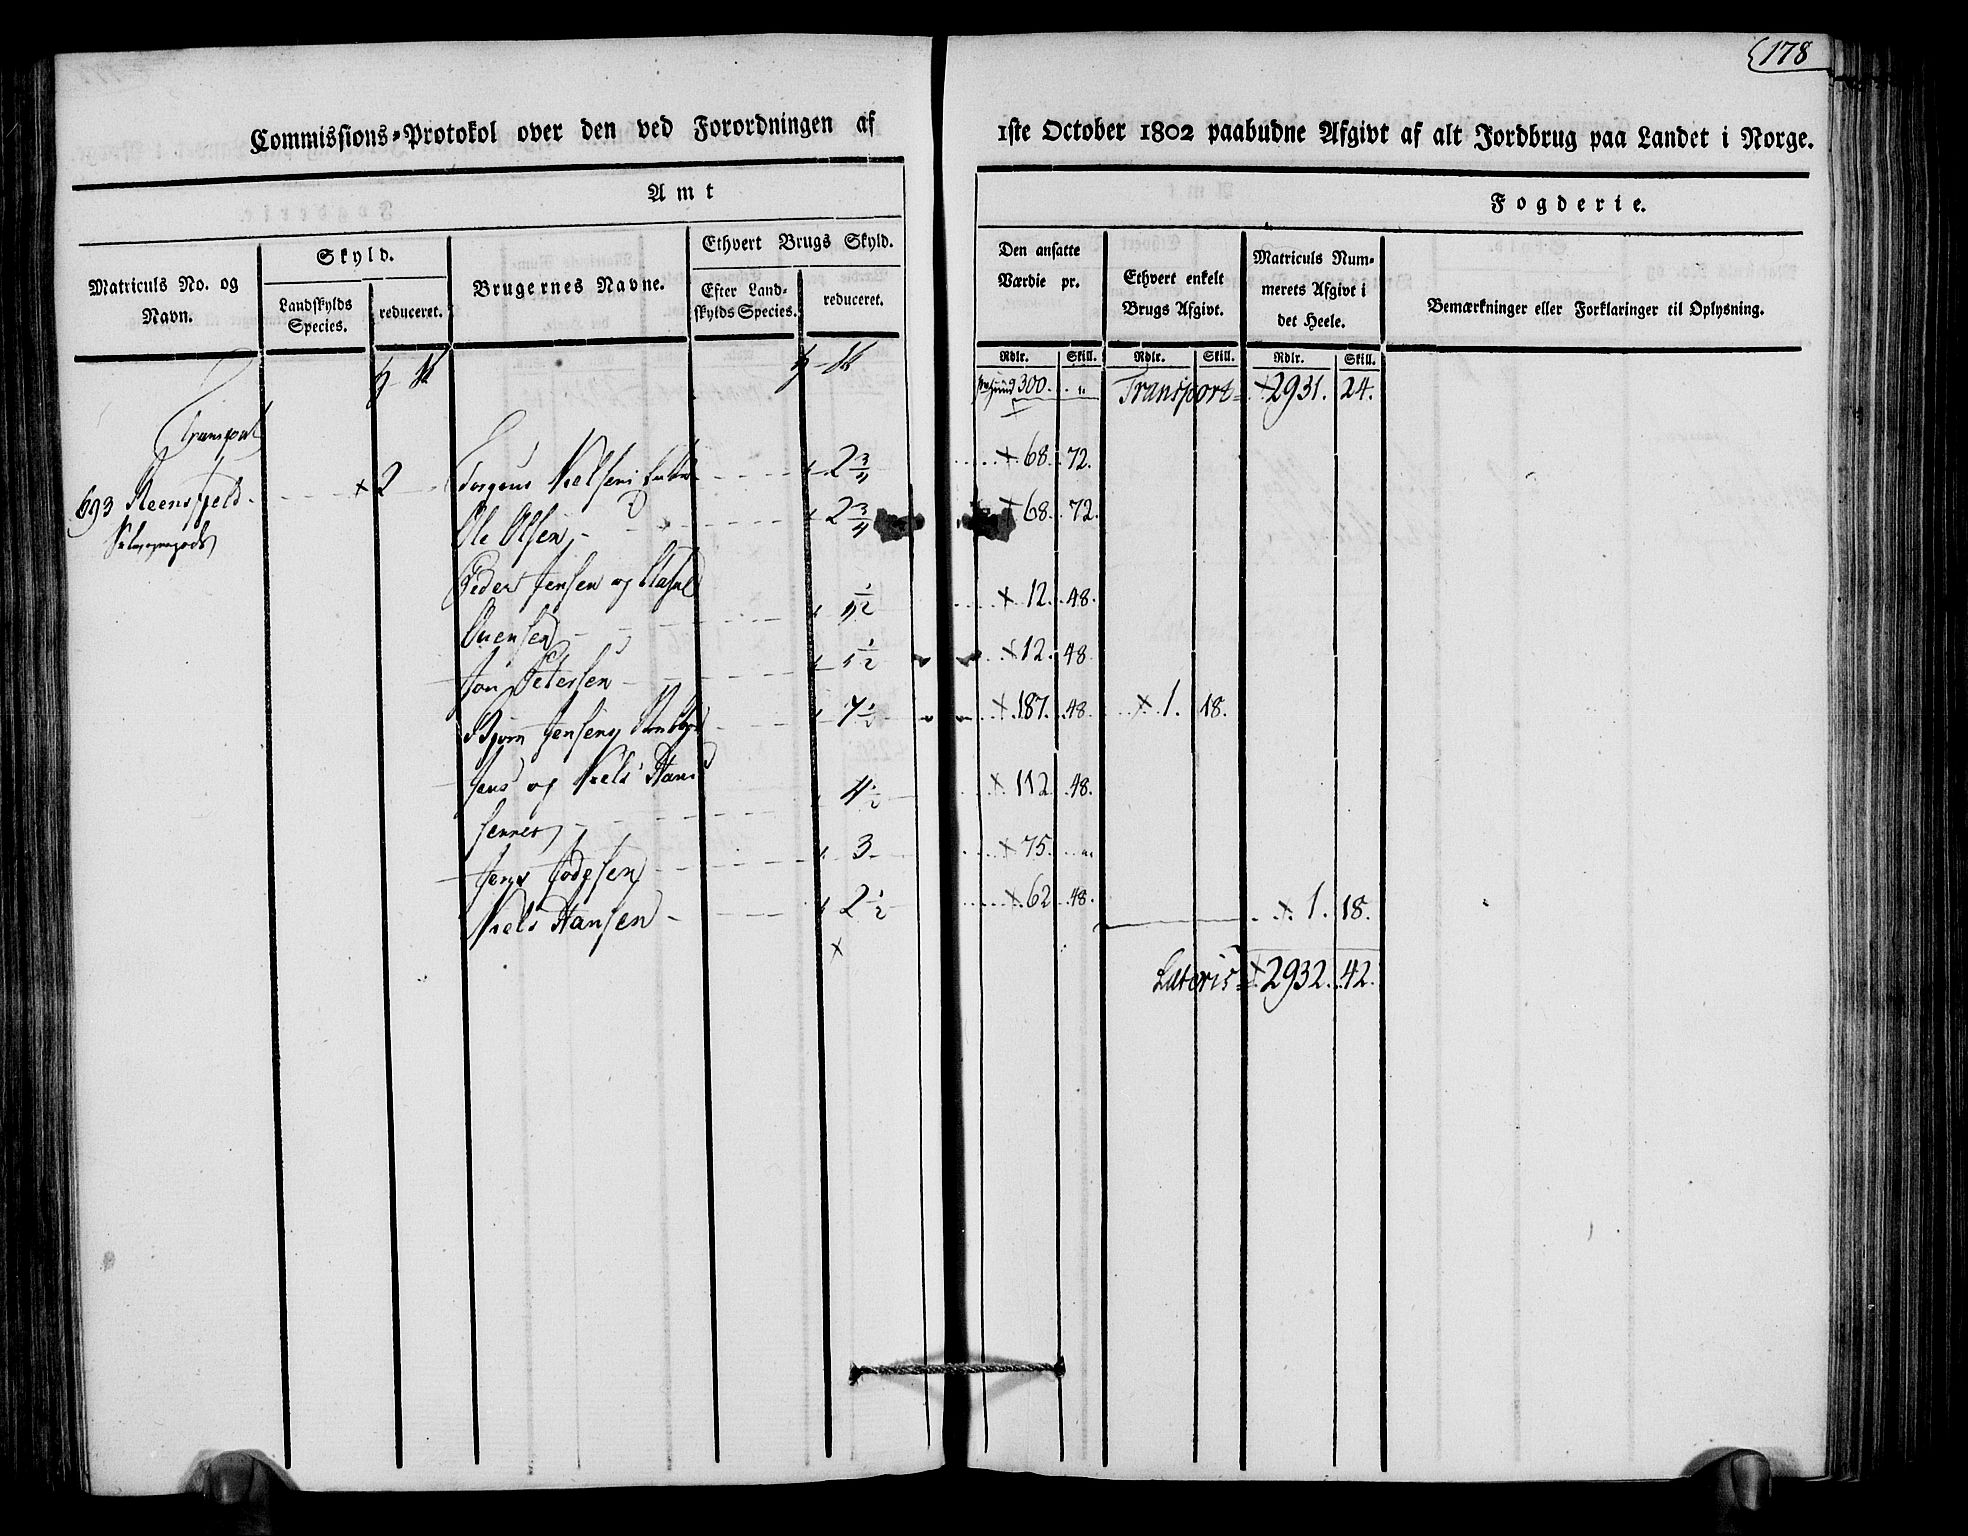 178
Commissions-Protokol over den ved Forordningen af 1ste October 1802 paabudne Afgivt af alt Jordbrug paa Landet i Norge.
Amt Fogderie.
Matriculs No. og Navn.
Skyld.
Landskylds Species.
reduceret.
Brugernes Navne.
Ethvert Brugs Skyld.
Efter Landskylds Species.
reduceret.
Den ansatte Værdie pr.
Ethvert enkelt Brugs Afgivt.
Matriculs Nummerets Afgivt i det Heele.
Bemærkninger eller Forklaringer til Oplysning.
Rdlr. Skill. Rdlr. Skill. Rdlr. Skill.
300. Transport 2931. 24.
Transport
693 Steensfjeld 2 Nielsen 2 3/4 68. 72.
Ole Olsen 2 3/4 68. 72.
Peder Jensen og
Ovensen 1/2 12. 48.
Jon Petersen 1/2 12. 48.
Bjørn Jensen 7 1/2 187. 48. 1. 18.
Jens og Niels Han
sønner 4 1/2 112. 48.
Jens 3 75.
Niels Hansen 2 1/2 62. 48. 1. 18.
Lateris 2932. 42.